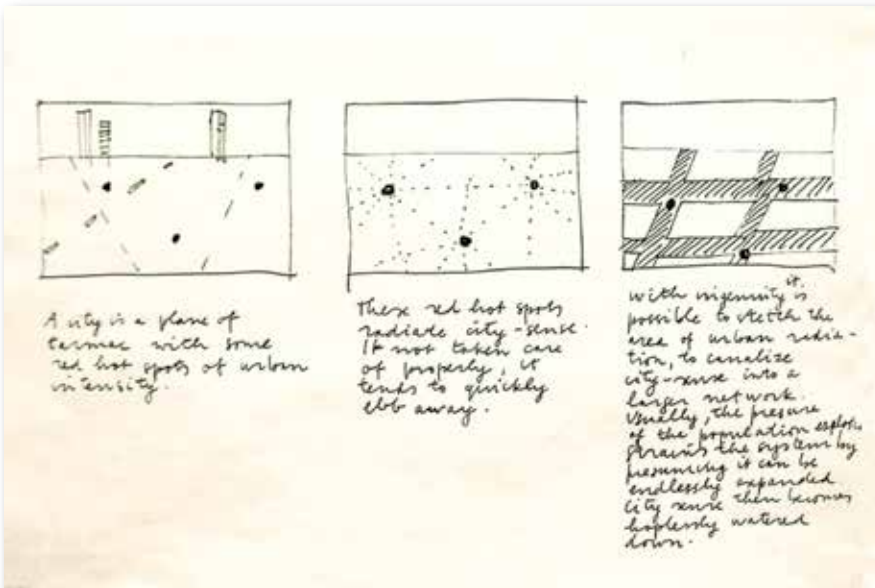 A city is a plane of
tarmac with some
red hot spots of urban
intensity.
These red hot spots
radiate city-sense.
If not taken care
of properly, it
tends to quickly
ebb away.
With ingenuity it is
possible to stretch the
area of urban radia-
tion, to canalize
city-sense into a
larger network.
Usually, the pressure
of the population
strains the system by
presuming it can be
endlessly expanded
City sense then becomes
hoplessly watered
down.